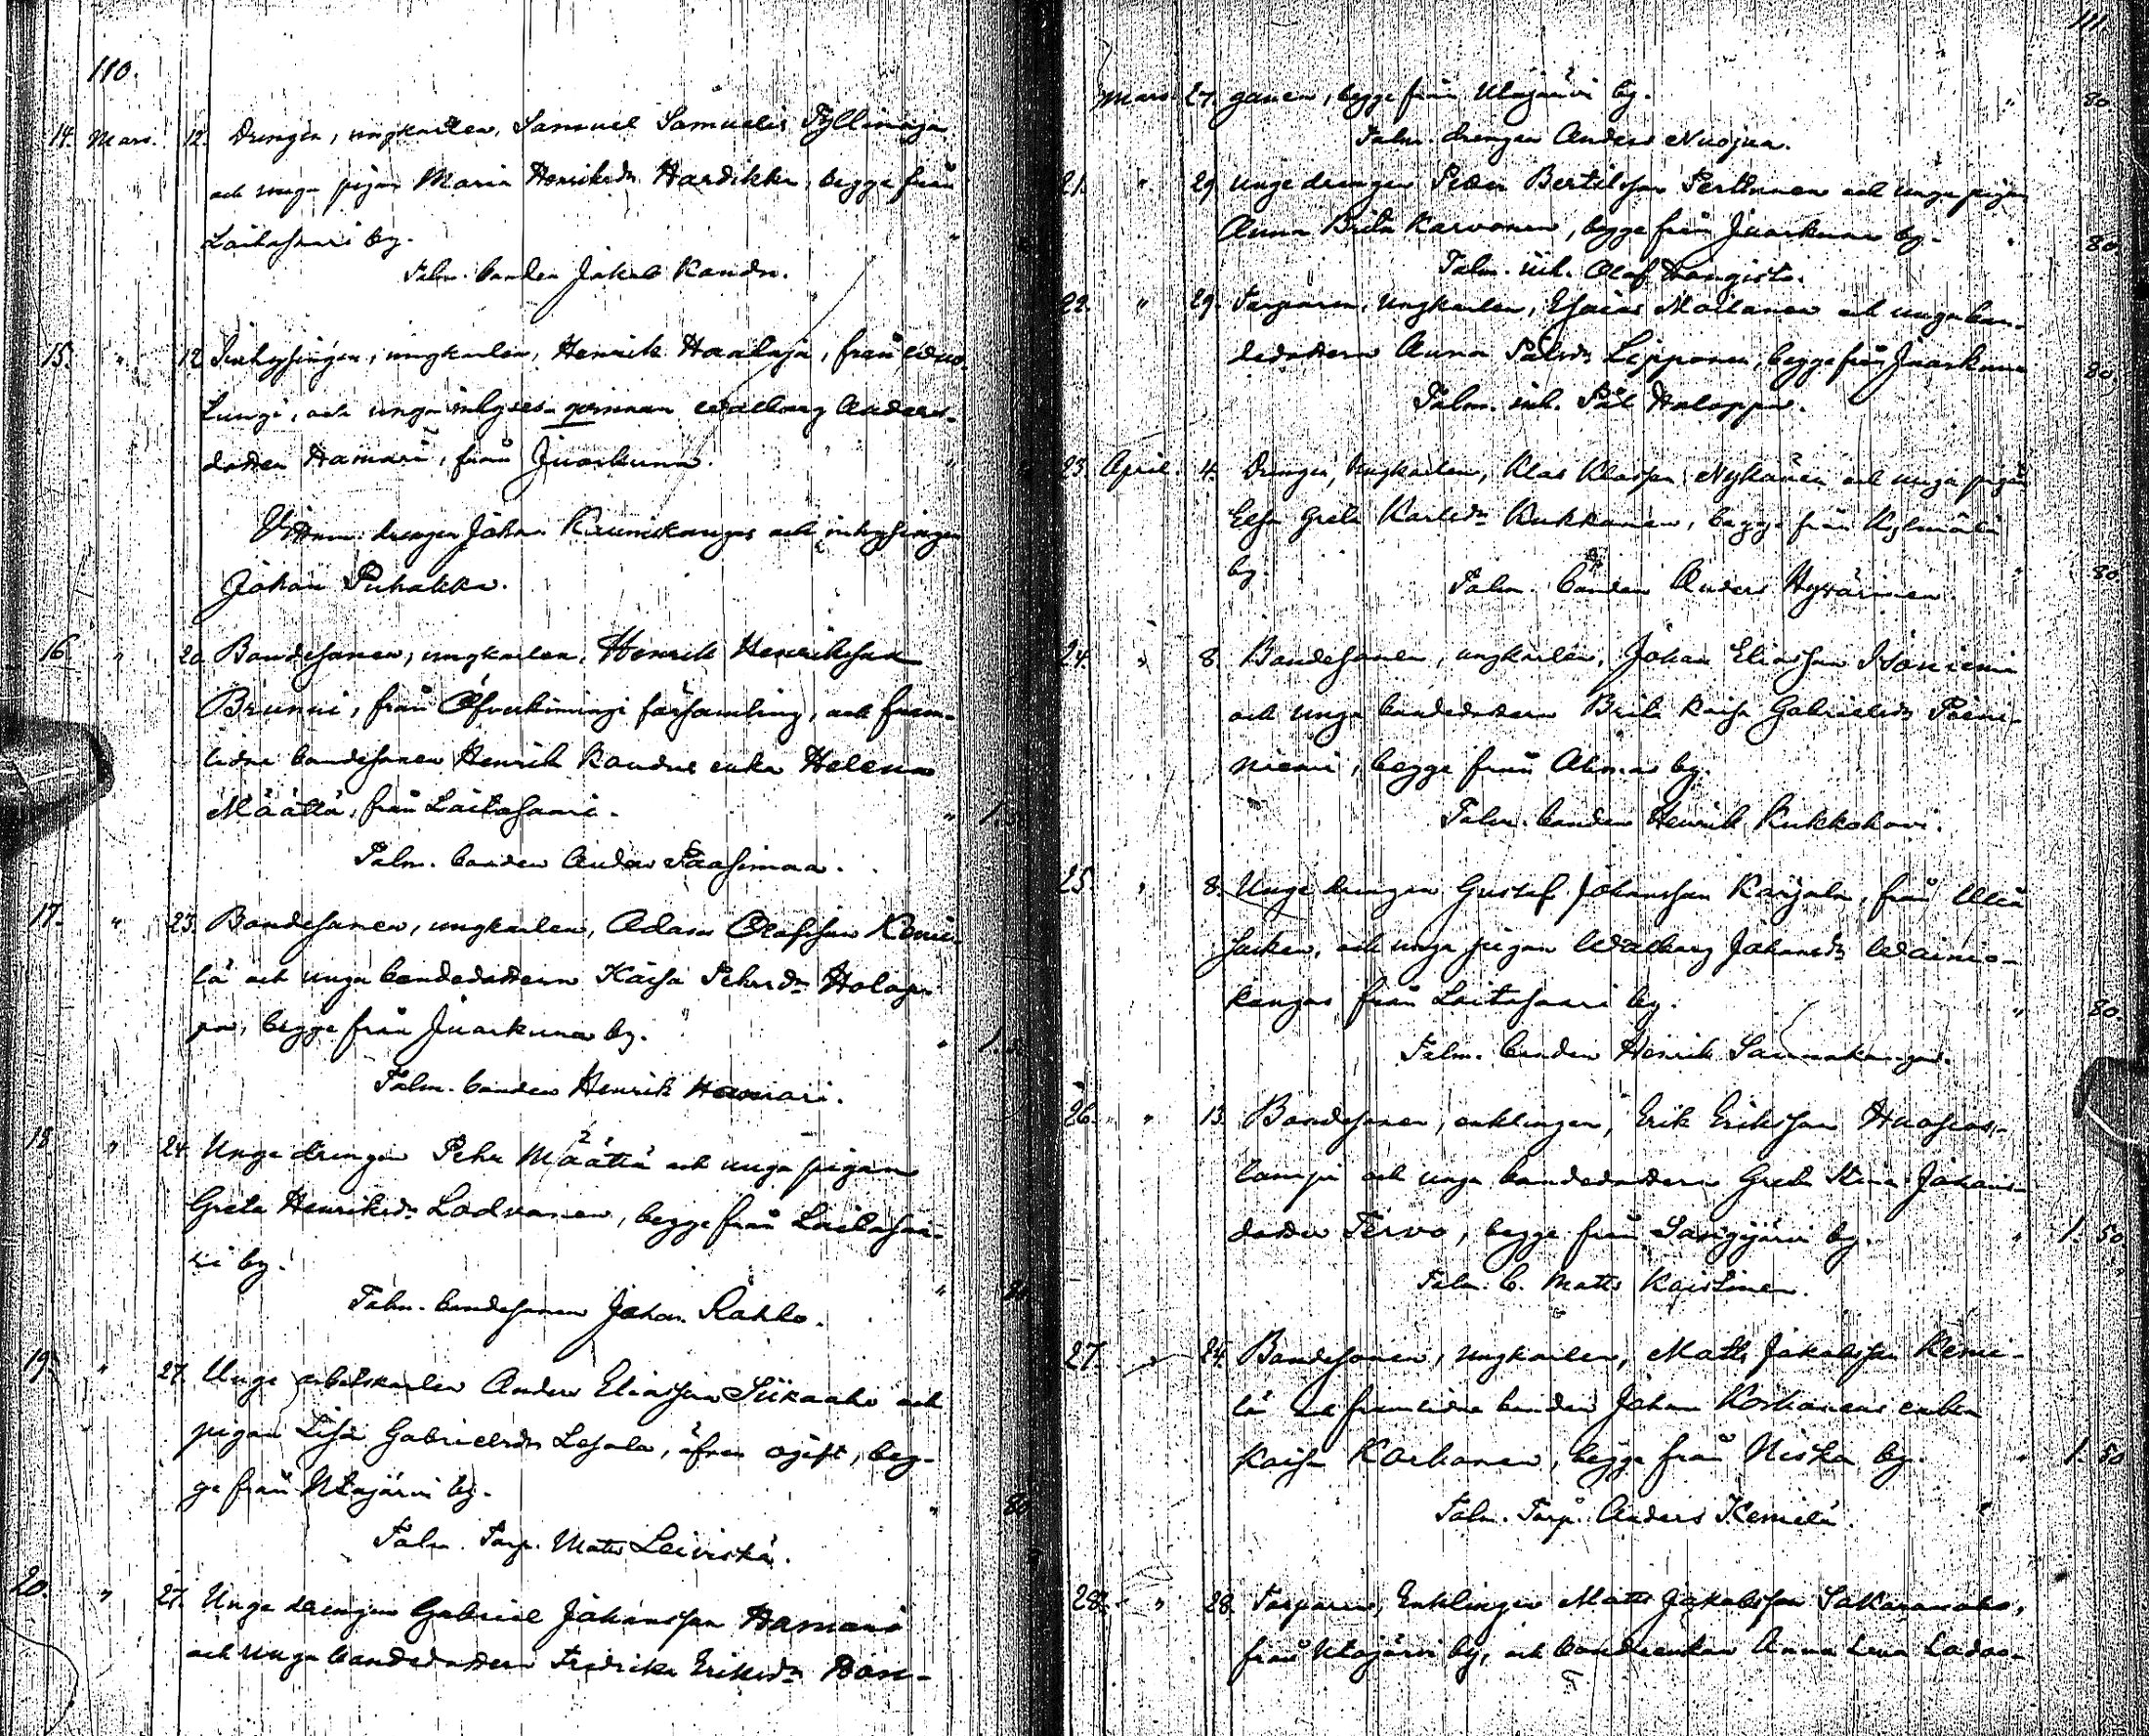 110.
14. Mars. 12. Drengen, ungkarlen, Samuel Samuelss Tyllinoja
och unga pigan Maria Henriksdr Hardikka, begge från
Laitasaari by. "
Talm. bonden Jakob Kandn.
15. " 12. Inhysingen, ungkarlen, Henrik Haataja, från
Lungi, och unga inhyses qvinnan Walborg Anders-
dotter Hamari, från Juorkuna. "
Vittnen: drengen Johan Kauniskangas och inhysingen
Johan Puhakka.
16. " 20. Bondesonen, ungkarlen, Henrik Henriksson
Brunni, från Öfverkiiminge församling, och fram-
lidne bondesonen Henrik Kandns enka Helena
Määttä, från Laitasaari. " 1.
Talm. bonden Anders Paasimaa.
17. " 23. Bondesonen, ungkarlen, Adam Olofsson Kemi-
lä och unga bondedottern Kaisa Pehrsdr Holap-
pa, begge från Juorkuna by. " 1.
Talm. bonden Henrik Hamari.
18. " 24. Unge drengen Pehr Määttä och unga pigan
Greta Henriksdr Lodvanen, begge från Laitasaa-
ri by. " 80
Talm. bondesonen Johan Rahko.
19. " 27. Unge arbetskarlen Anders Eliasson Siikaaho och
pigan Lisa Gabrielsdr Lesala, äfven ogift, beg-
ge från Utajärvi by. " 80
Talm. Torp. Matts Leiviskä.
20. " 27. Unge drengen Gabriel Johansson Hamari
och unga bondedottern Fredrika Eriksdr Ron-
111.
Mars. 27. ganen, begge från Utajärvi by. " 80.
Talm. drengen Anders Nuojua.
21. " 29. Unge drengen Petter Bertilsson Perttunen och unga pigan
Anna Brita Karvonen, begge från Juorkuna by. " 80.
Talm. inh. Olof Hangisto.
22. " 29. Torparen, Ungkarlen, Esaias Moilanen och unga bon-
dedottern Anna Pålsdr Lipponen, begge från Juorkuna 80.
Talm. inh. Pål Holappa.
23. April. 4. Drengen, Ungkarlen, Klas Klasson Nykänen och unga pigan
Elsa Greta Karlsdr Kukkonen, begge från Kylmälä
by. " 80.
Talm. bonden Anders Hyvärinen.
24. " 8. Bondesonen, ungkarlen, Johan Eliasson Isoniemi
och unga bondedottern Brita Kaisa Gabrielsdr Päiri-
niemi, begge från Ahmas by.
Talm. bonden Henrik Kukkohovi.
25. " 8. Unge drengen Gustaf Johansson Karjala, från Uleå
socken, och unga pigan Walborg Johansdr Wainio-
kangas från Laitasaari by. " 80.
Talm. bonden Henrik Sannakangas.
26. " 13. Bondesonen, enklingen, Erik Eriksson Huosios-
lampi och unga bondedottern Greta Stina Johans-
dotter Tervo, begge från Sangijärvi by. " 1. 50
Talm. b. Matts Kaistinen.
27. " 24. Bondesonen, Ungkarlen, Matts Jakobsson Kemi-
lä och framlidne bonden Johan Korhonens enka
Kaisa Korhonen, begge från Niska by. " 1. 50
Talm. Torp. Anders Kemilä.
28. " 28. Torparen, Enklingen Matts Jakobsson Sakaranaho,
från Utajärvi by, och bondeenkan Anna Lena Lodva-